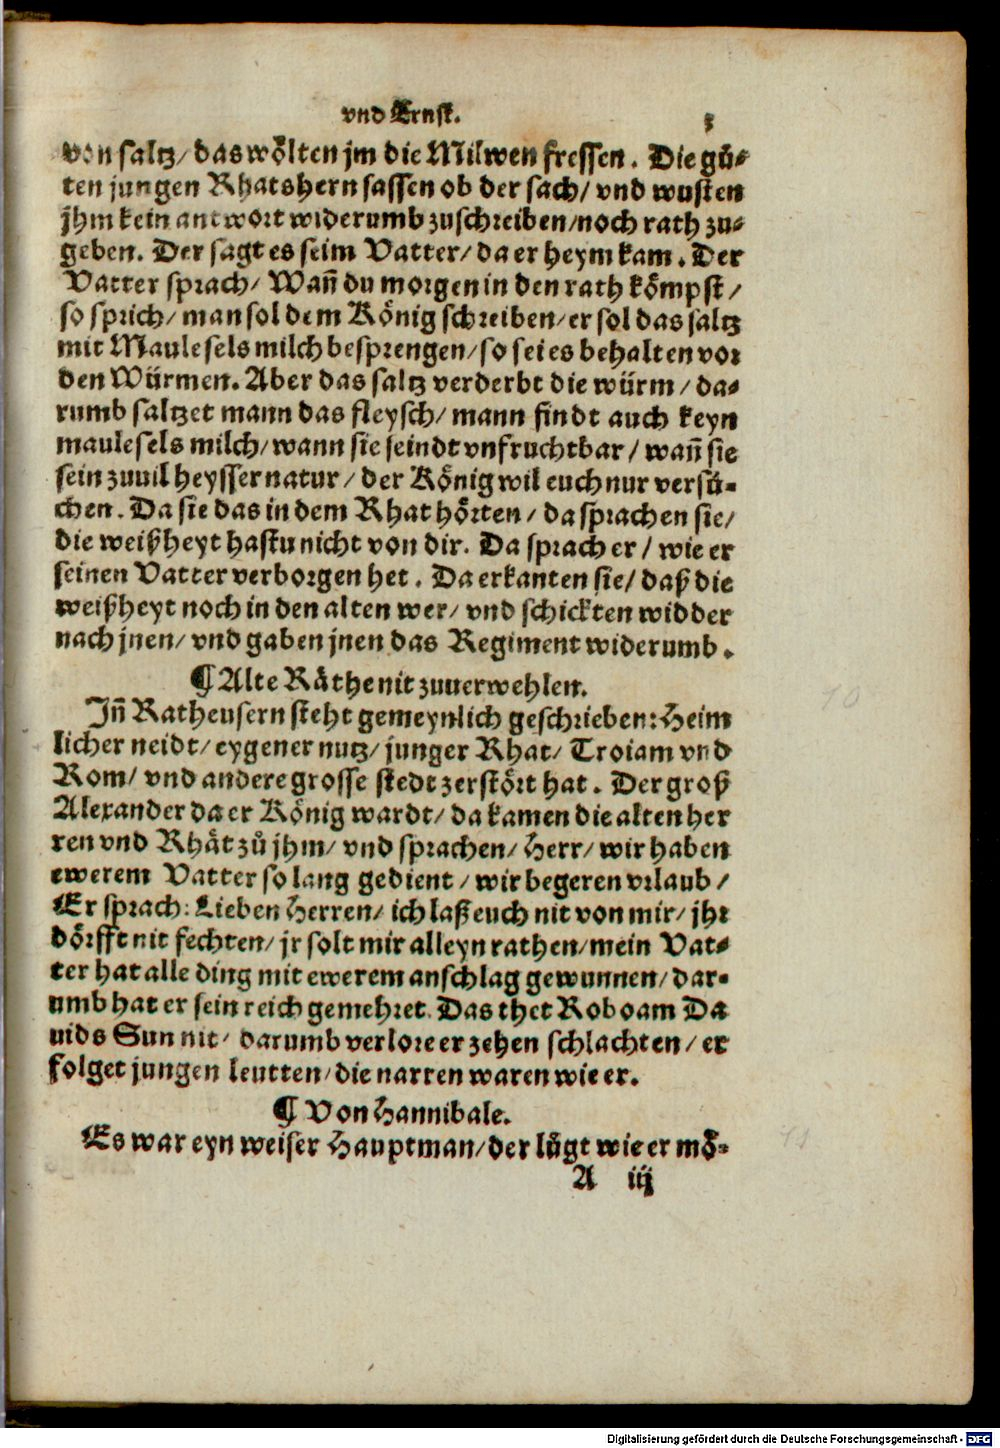 vnd Ernst.
3
von saltz/ das wölten jm die Milwen fressen. Die gů-
ten jungen Rhatshern sassen ob der sach/ vnd wusten
jhm kein antwort widerumb zuschreiben/ noch rath zu-
geben. Der sagt es seim Vatter/ da er heym kam. Der
Vatter sprach/ Wañ du morgen in den rath kömpst/
so sprich/ man sol dem König schreiben/ er sol das saltz
mit Maulesels milch besprengen/ so sei es behalten vor
den Würmen. Aber das saltz verderbt die würm/ da-
rumb saltzet mann das fleysch/ mann findt auch keyn
maulesels milch/ wann sie seindt vnfruchtbar/ wañ sie
sein zuuil heysser natur/ der König wil euch nur versů-
chen. Da sie das in dem Rhat hörten/ da sprachen sie/
die weißheyt hastu nicht von dir. Da sprach er/ wie er
seinen Vatter verborgen het. Da erkanten sie/ daß die
weißheyt noch in den alten wer/ vnd schickten widder
nach jnen/ vnd gaben jnen das Regiment widerumb.
¶ Alte Räthe nit zuuerwehlen.
Jñ Ratheusern steht gemeynlich geschrieben: Heim
licher neidt/ eygener nutz/ junger Rhat/ Troiam vnd
Rom/ vnd andere grosse stedt zerstört hat. Der groß
Alexander da er König wardt/ da kamen die alten her
ren vnd Rhät zů jhm/ vnd sprachen/ Herr/ wir haben
ewerem Vatter so lang gedient/ wir begeren vrlaub/
Er sprach: Lieben Herren/ ich laß euch nit von mir/ jhr
dörfft nit fechten/ jr solt mir alleyn rathen/ mein Vat-
ter hat alle ding mit ewerem anschlag gewunnen/ dar-
umb hat er sein reich gemehret. Das thet Roboam Da
uids Sun nit/ darumb verlore er zehen schlachten/ er
folget jungen leutten/ die narren waren wie er.
¶ Von Hannibale.
Es war eyn weiser Hauptman/ der lůgt wie er mö-
A iij
10
11
Digitalisierung gefördert durch die Deutsche Forschungsgemeinschaft - DFG